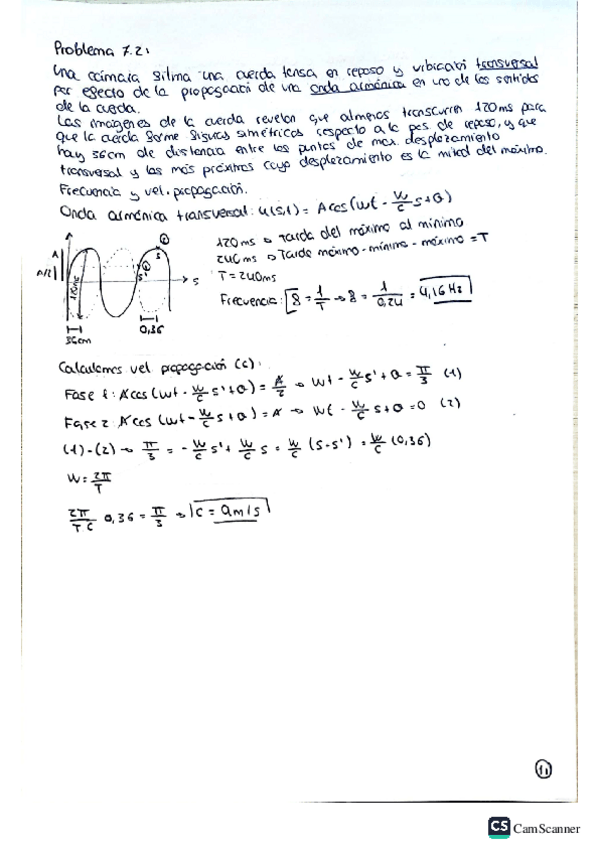 Problema 7.2:
Una cámara filma una cuerda tensa en reposo y vibración transversal
por efecto de la propagación de una onda armónica en uno de los sentidos
de la cuerda.
Las imágenes de la cuerda revelan que al menos transcurren 120ms para
que la cuerda forme figuras simétricas respecto a la pos. de reposo, y que
hay 36cm de distancia entre los puntos de max. desplazamiento
transversal y los más próximos cuyo desplazamiento es la mitad del máximo.
Frecuencia y vel. propagación.
Onda armónica transversal: u(s,t) = A cos(wt - w/c s + θ)
A
A/2
120ms
s'
s
1
2
s
36cm
0,36
120ms → Tarda del máximo al mínimo
240ms → Tarde máximo - mínimo - máximo = T
T = 240ms
Frecuencia: f = 1/T → f = 1/0,24 = 4,16 Hz
Calculemos vel propagación (c):
Fase 1: A cos(wt - w/c s' + θ) = A/2 → wt - w/c s' + θ = π/3 (1)
Fase 2: A cos(wt - w/c s + θ) = A → wt - w/c s + θ = 0 (2)
(1)-(2) → π/3 = - w/c s' + w/c s = w/c (s-s') = w/c (0,36)
w = 2π/T
2π/(T c) 0,36 = π/3 → c = 9m/s
11
CS CamScanner